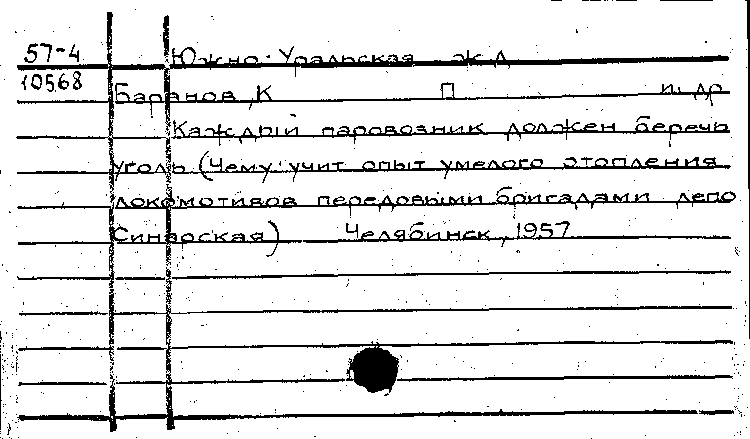 57-4 Южно-Уральская ж.д
10568
Баранов, К П и др
Каждый паровозник должен беречь
уголь (Чему учит опыт умелого отопления
локомотивов передовыми бригадами депо
Синарская) Челябинск, 1957